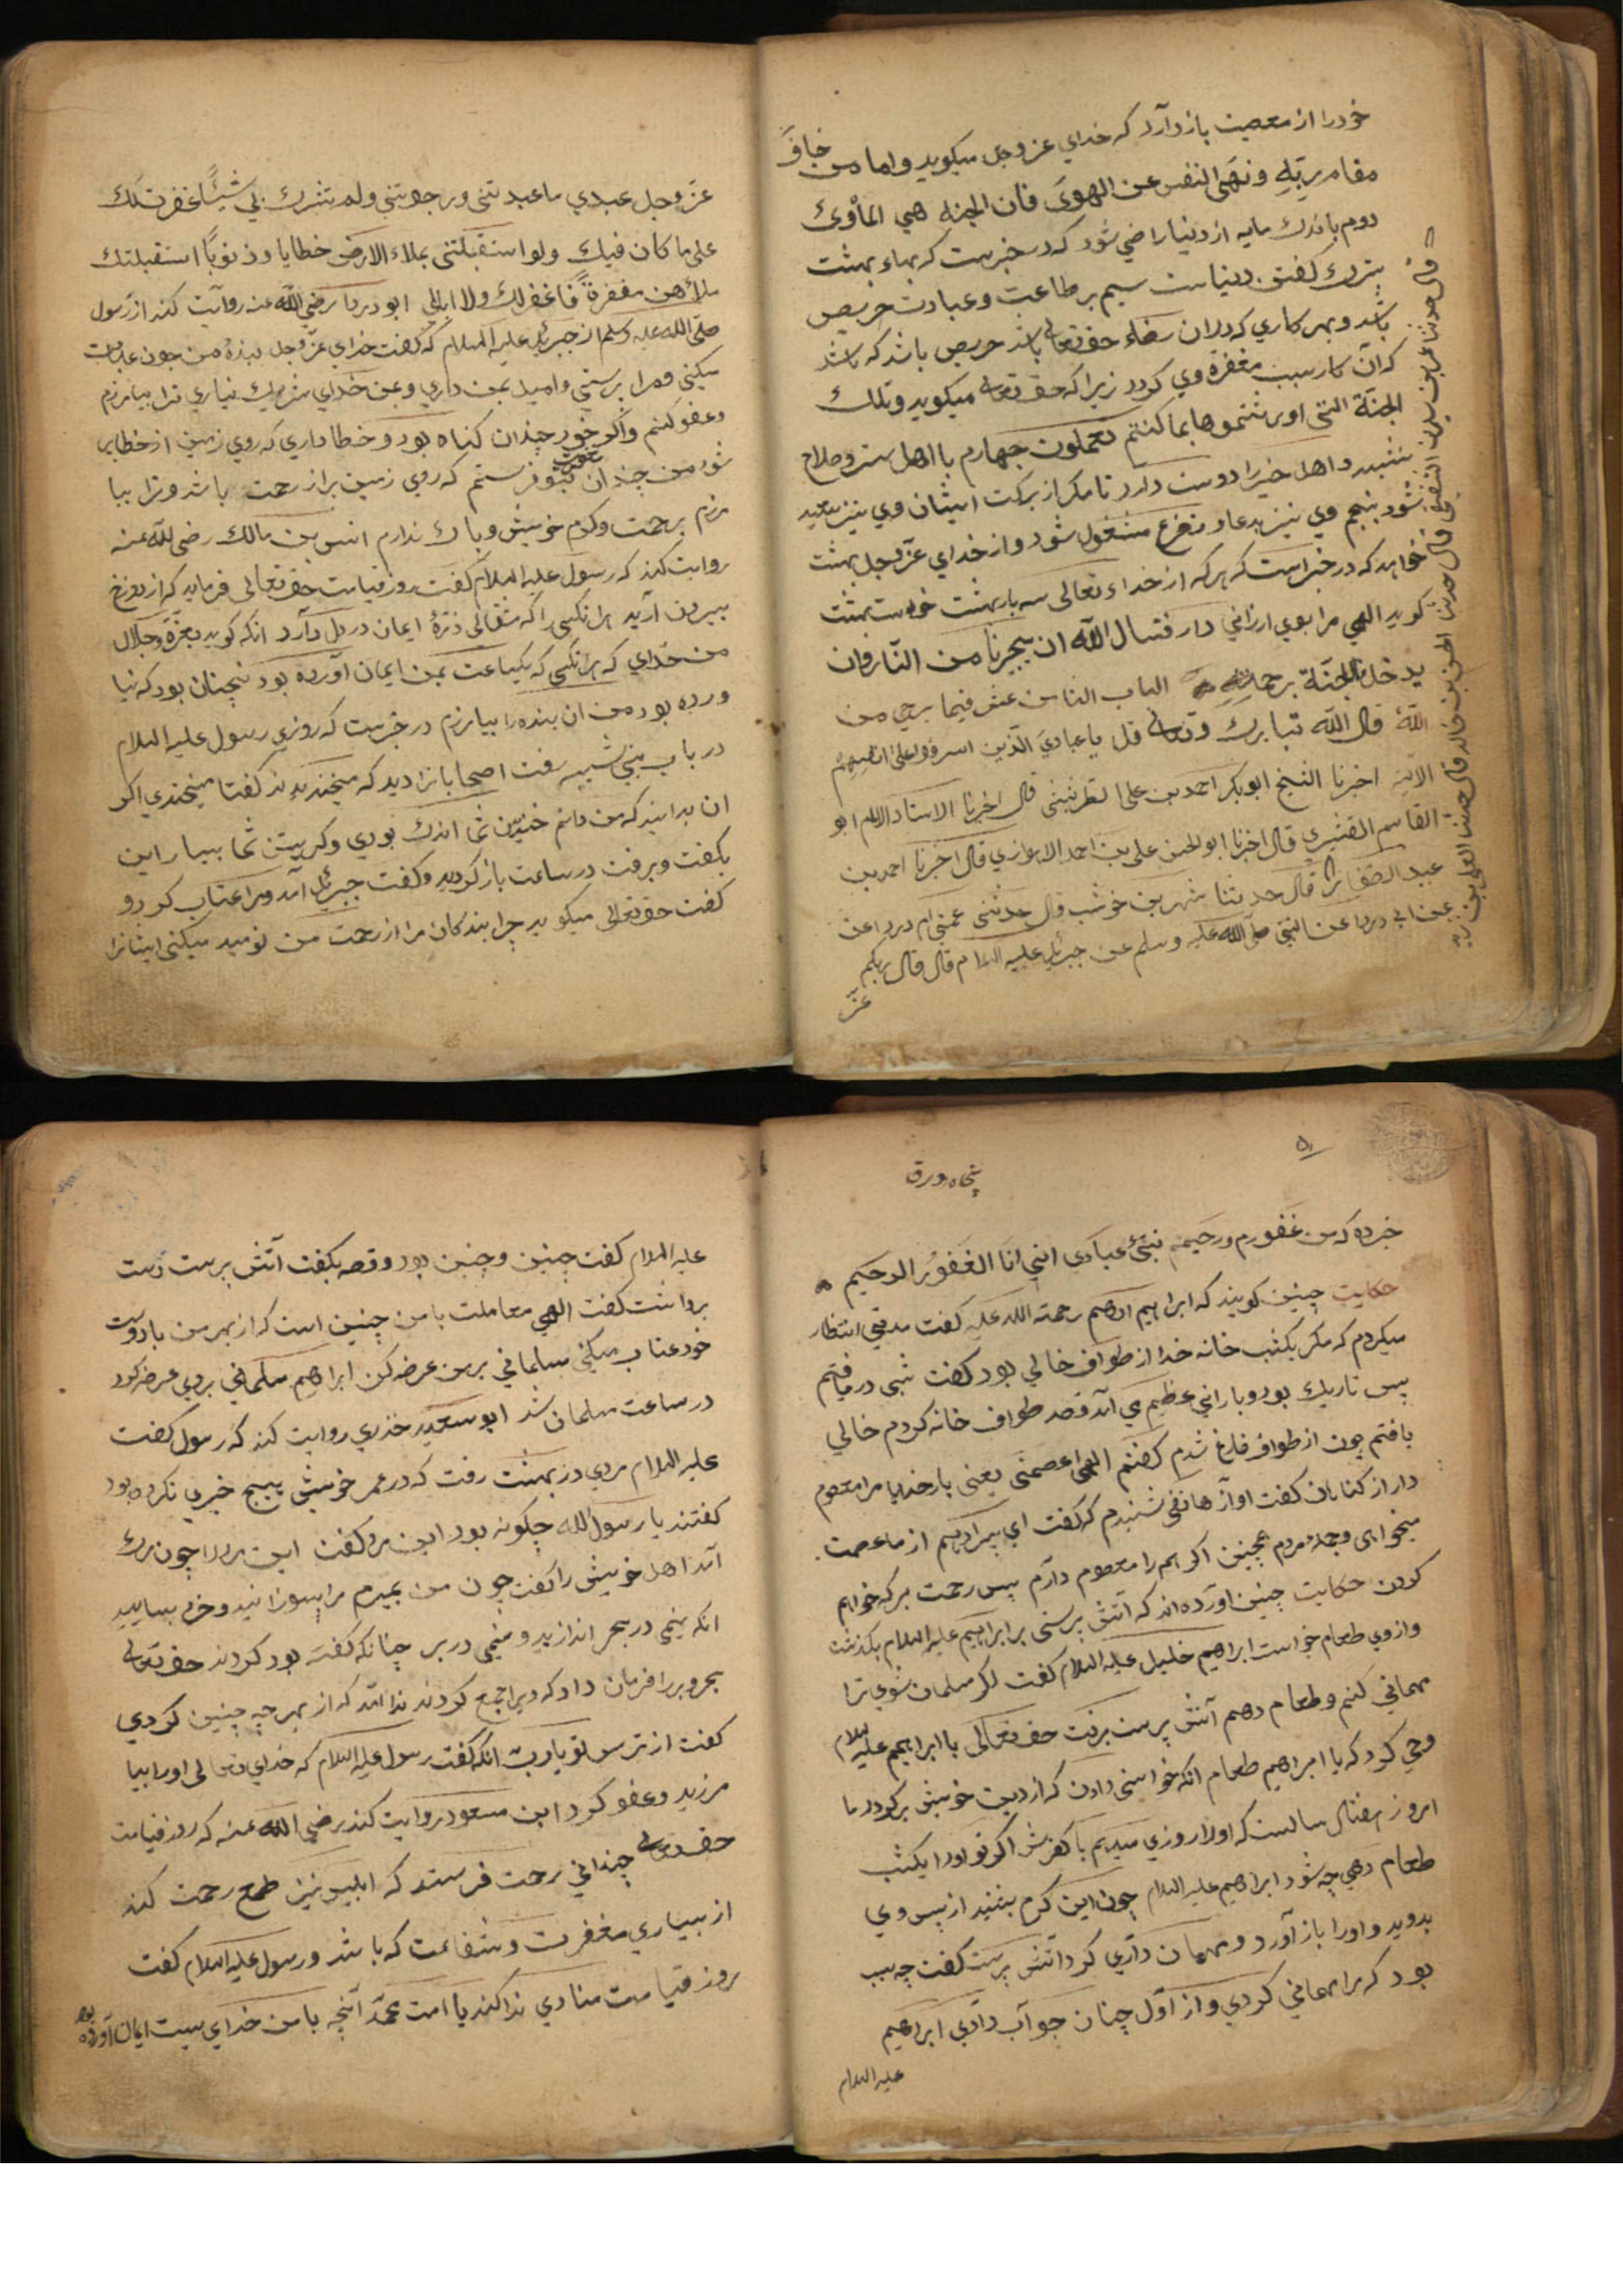 خودرا از معصیت باز دارد که خدای عز وجل میکوید واما من خاف
مقام ربّه ونهی النفس عن الهوی فان الجنة هی المأوی
دوم باندك مایه از دنیا راضی شود که در خبرست که بهاء بهشت
بترك کفتن دنیاست سیم بر طاعت وعبادت حریص
باشد وبهر کاری که دران رضاء حقتعالی باشد حریص باشد که باشد
که آن کار سبب مغفرة وی کردد زیرا که حقتعالی میکوید وتلك
الجنّة التی اورثتموها بما کنتم تعملون چهارم با اهل ستر وصلاح
نشیند واهل خیر را دوست دارد تا مکر از برکت ایشان وی نیز سعید
شود پنجم وی نیز بدعا وتضرع مشغول شود واز خدای عزّ وجل بهشت
خواهد که در خبر است که هرکه از خداء تعالی سه بار بهشت خواست بهشت
کوید الهی مرا بوی ارزانی دار فنسال اللّه ان یجیرنا من النّار وان
یدخلنا الجنّة برحمته الباب الثامن عشر فیما یرجی من
اللّه قال اللّه تبارك وتعالی قل یا عبادی الذین اسرفوا علی انفسهم
الآیة اخبرنا الشیخ ابوبکر احمد بن علی قال اخبرنا الاستاد الامام ابو
القاسم القشیری قال اخبرنا ابو الحسن علی بن احمد الاهوازی قال اخبرنا احمد بن
عبید الصفار قال حدثنا شهر بن خوشب قال حدثتنی عمتی ام دردا عن
عن ابی دردا عن النبی صلی اللّه علیه وسلم عن جبرئیل علیه السلام قال قال ربکم
عزّ
عزّ وجل عبدی ما عبدتنی ورجوتنی ولم تشرك بی شیئًا غفرت لك
علی ما کان فیك ولو استقبلتنی بملاء الارض خطایا وذنوبًا استقبلتك
بملأهن مغفرةً فاغفر لك ولا ابالی ابو دردا رضی اللّه عنه روایت کند از رسول
صلّی اللّه علیه وسلم از جبرئیل علیه السلام که کفت خدای عزّ وجل بنده من چون عبادت
میکنی ومرا پرستی وامید بمن داری وبمن خدای شریك نیاری ترا بیامرزم
وعفو کنم واکر خود چندان کناه بود وخطا داری که روی زمین از خطا پر
شود من چندان عفو بتو فرستم که روی زمین پر از رحمت باشد وترا بیا
مرزم برحمت وکرم خویش وباك ندارم انس بن مالك رضی للّه عنه
روایت کند که رسول علیه السلام کفت روز قیامت حقتعالی فرماید که از دوزخ
بیرون آرید هر انکسی را که مثقالی ذرّهٔ ایمان در دل دارد انکه کوید بعزّة وجلال
من خدای که هر انکسی که یکساعت بمن ایمان آورده بود نچنان بود که نیا
ورده بود من ان بنده را بیامرزم در خبرست که روزی رسول علیه السلام
در باب بنی شیبه رفت اصحابانرا دید که میخندیدند کفتا میخندی اکر
ان بدانید که من دانم خندیدن شما اندك بودی وکریستن شما بسیار این
بکفت وبرفت در ساعت باز کردید وکفت جبرئیل آمد ومرا عتاب کرد و
کفت حقتعالی میکوید چرا بندکان مرا از رحمت من نومید میکنی ایشانرا
۵۰
پنجاه ورق
خبر ده که من غفورم ورحیم نبّئ عبادی انی انا الغفورُ الرحیم
حکایت چنین کویند که ابراهیم ادهم رحمة اللّه علیه کفت مدتی انتظار
میکردم که مکر یکشب خانه خدا از طواف خالی بود کفت شبی دریافتم
بس تاریك بود وبارانی عظیم می آمد قصد طواف خانه کردم خالی
یافتم چون از طواف فارغ شدم کفتم الهی اعصمنی یعنی بار خدایا مرا معصوم
دار از کناهان کفت آواز هاتفی شنیدم که کفت ای پسر ادهم از ما عصمت
میخواهی وجملهٔ مردم همچنین اکر همه را معصوم دارم پس رحمت بر که خواهم
کردن حکایت چنین آورده اند که آتش پرستی بر ابراهیم علیه السلام بکذشت
وازوی طعام خواست ابراهیم خلیل علیه السلام کفت اکر مسلمان شوی ترا
مهمانی کنم وطعام دهم آتش پرست برفت حقتعالی با ابراهیم علیه السلام
وحی کرد که یا ابراهیم طعام انکه خواستی دادن که از دین خویش برکردد ما
امروز هفتاد سالست که اورا روزی میدهیم با کفرش اکر تو اورا یکشب
طعام دهی چه شود ابراهیم علیه السلام چون این کرم بشنید از پس وی
بدوید واورا باز آورد ومهمان داری کرد آتش پرست کفت چه سبب
بود که مرا مهمانی کردی واز اوّل چنان جواب دادی ابراهیم
علیه السلام
علیه السلام کفت چنین وچنین بود وقصه بکفت آتش پرست دست
برداشت کفت الهی معاملت با من چنین است که از بهر من با دوست
خود عتاب میکنی مسلمانی بر من عرضه کن ابراهیم مسلمانی بر وی عرضه کرد
در ساعت مسلمان شد ابو سعید خدری روایت کند که رسول کفت
علیه السلام مردی در بهشت رفت که در عمر خویش هیچ خیری نکرده بود
کفتند یا رسول اللّه چکونه بود این مرد کفت این مردرا چون مرك
آمد اهل خویش را کفت چون من بمیرم مرا بسوزانید وخرد بسایید
انکه نیمی در بحر اندازید ونیمی در بر چنانکه کفته بود کردند حقتعالی
بحر وبر را فرمان داد که ویرا جمع کردند ندا آمد که از بهر چه چنین کردی
کفت از ترس تو یارب انکه کفت رسول علیه السلام که خدای تعالی اورا بیا
مرزید وعفو کرد ابن مسعود روایت کند رضی اللّه عنه که روز قیامت
حقتعالی چندانی رحمت فرستد که ابلیس نیز طمع رحمت کند
از بسیاری مغفرت وشفاعت که باشد ورسول علیه السلام کفت
روز قیامت منادی ندا کند یا امت محمّد آنچه با من خدای ایمان آورده بود